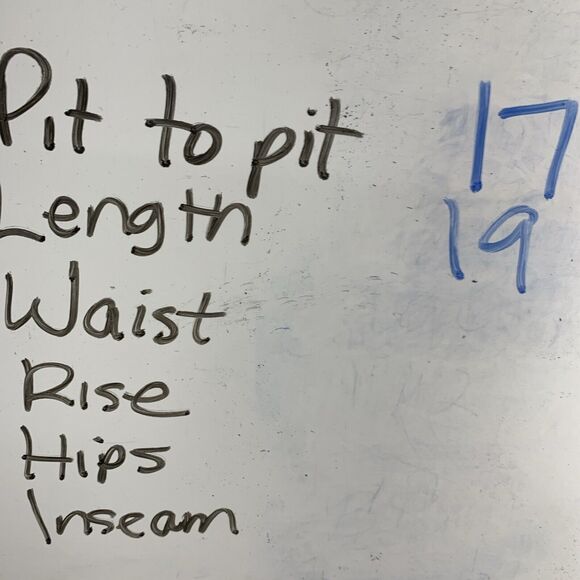 Pit to pit 17
Length 19
Waist
Rise
Hips
Inseam